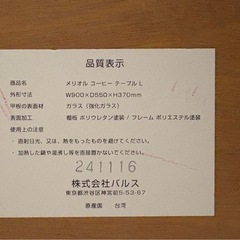 品質表示
商品名 メリオル コーヒー テーブル L
外形寸法 W900×D550×H370mm
甲板の表面材 ガラス（強化ガラス）
表面加工 棚板 ポリウレタン塗装 / フレーム ポリエステル塗装
使用上の注意
・直射日光、又は、熱をもったものを避けてください。
・加熱した鍋や湯沸し等を直接置かないでください。
241116
株式会社バルス
東京都渋谷区神宮前5-53-67
原産国 台湾